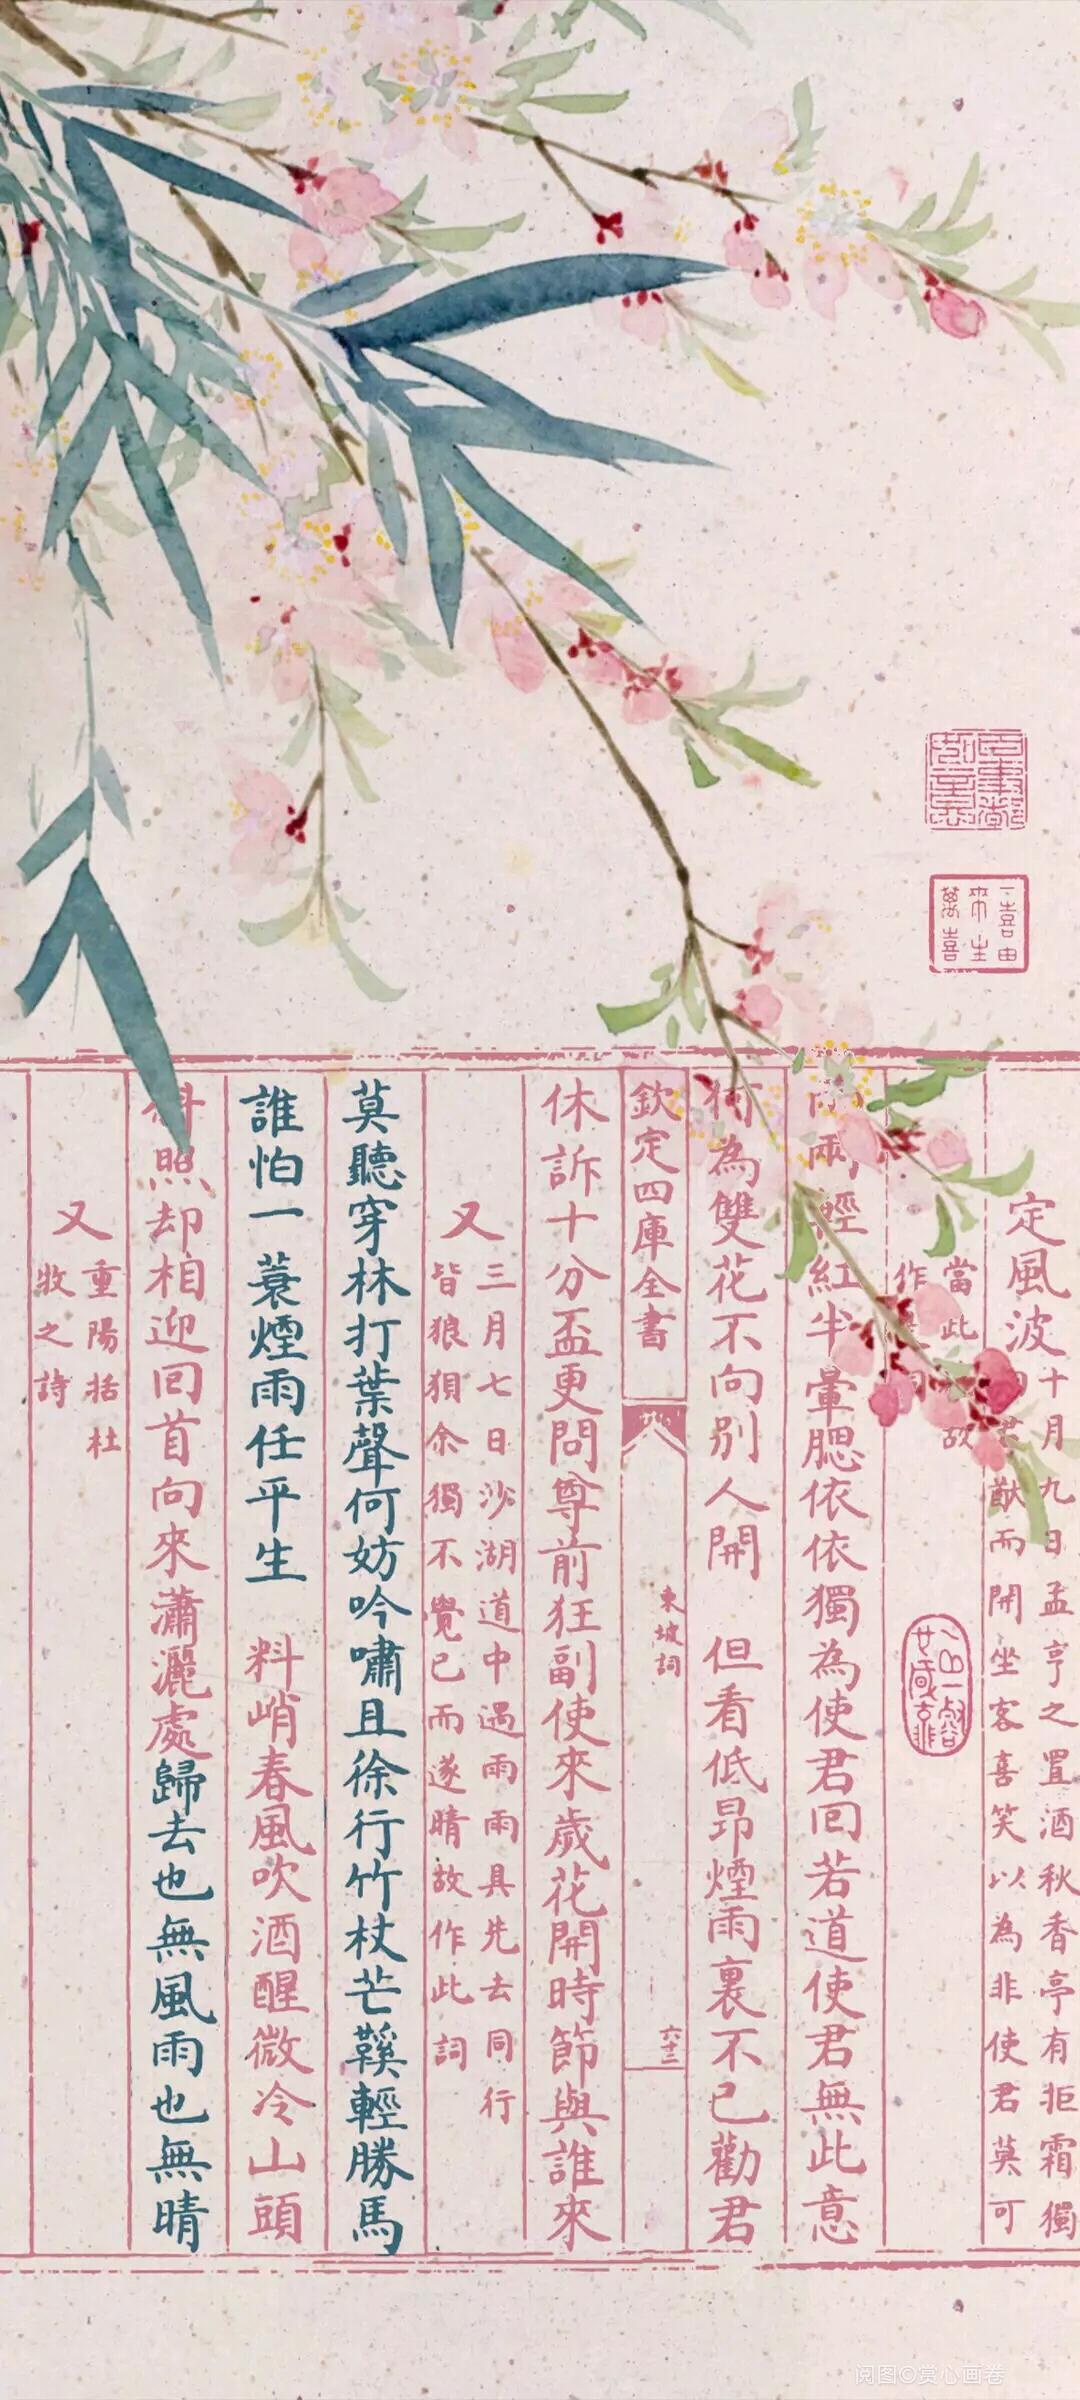 定風波
十月九日孟亨之置酒秋香亭有拒霜獨
猷而開坐客喜笑以為非使君莫可
當此
作
兩輕紅半暈腮依依獨為使君回若道使君無此意
何為雙花不向別人開　但看低昂煙雨裏不已勸君
欽定四庫全書
東坡詞
六十二
休訴十分盃更問尊前狂副使來歲花開時節與誰來
又
三月七日沙湖道中遇雨雨具先去同行
皆狼狽余獨不覺已而遂晴故作此詞
莫聽穿林打葉聲何妨吟嘯且徐行竹杖芒鞵輕勝馬
誰怕一蓑煙雨任平生　料峭春風吹酒醒微冷山頭
斜照却相迎回首向來瀟灑處歸去也無風雨也無晴
又
重陽括杜
牧之詩
一喜由
來生
萬喜
阅图©赏心画卷